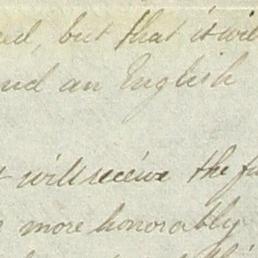 but that it wil
an English
will receive the fu
more honorably